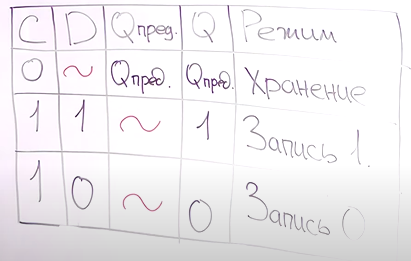 C D Qпред. Q Режим
0 ~ Qпред. Qпрд. Хранение
1 1 ~ 1 Запись 1.
1 0 ~ 0 Запись 0